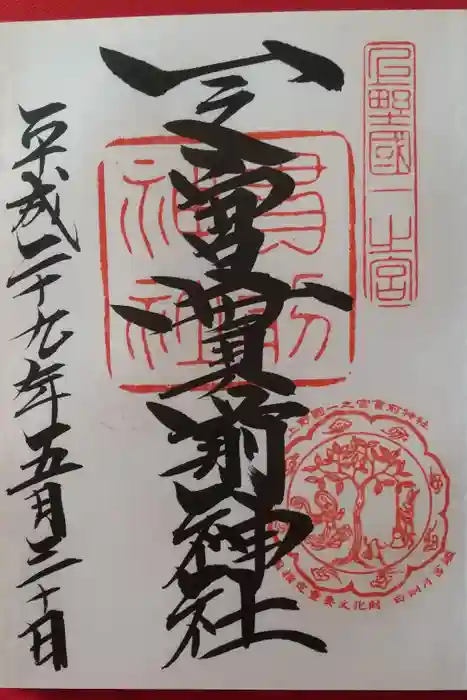 上野國一之宮
一之宮貫前神社
貫前神社
上野國一之宮貫前神社
平成二十九年五月三十日